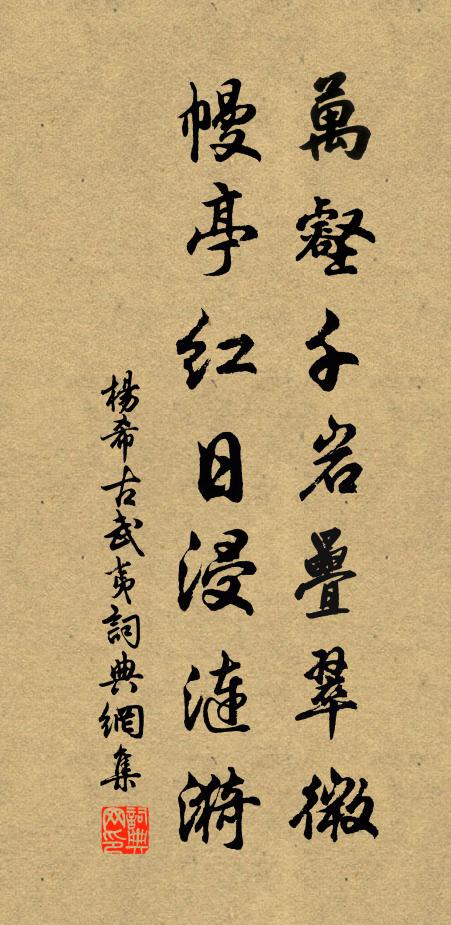 萬壑千岩疊翠微
幔亭紅日浸漣漪
楊希古武夷詞典網集
詞典网印